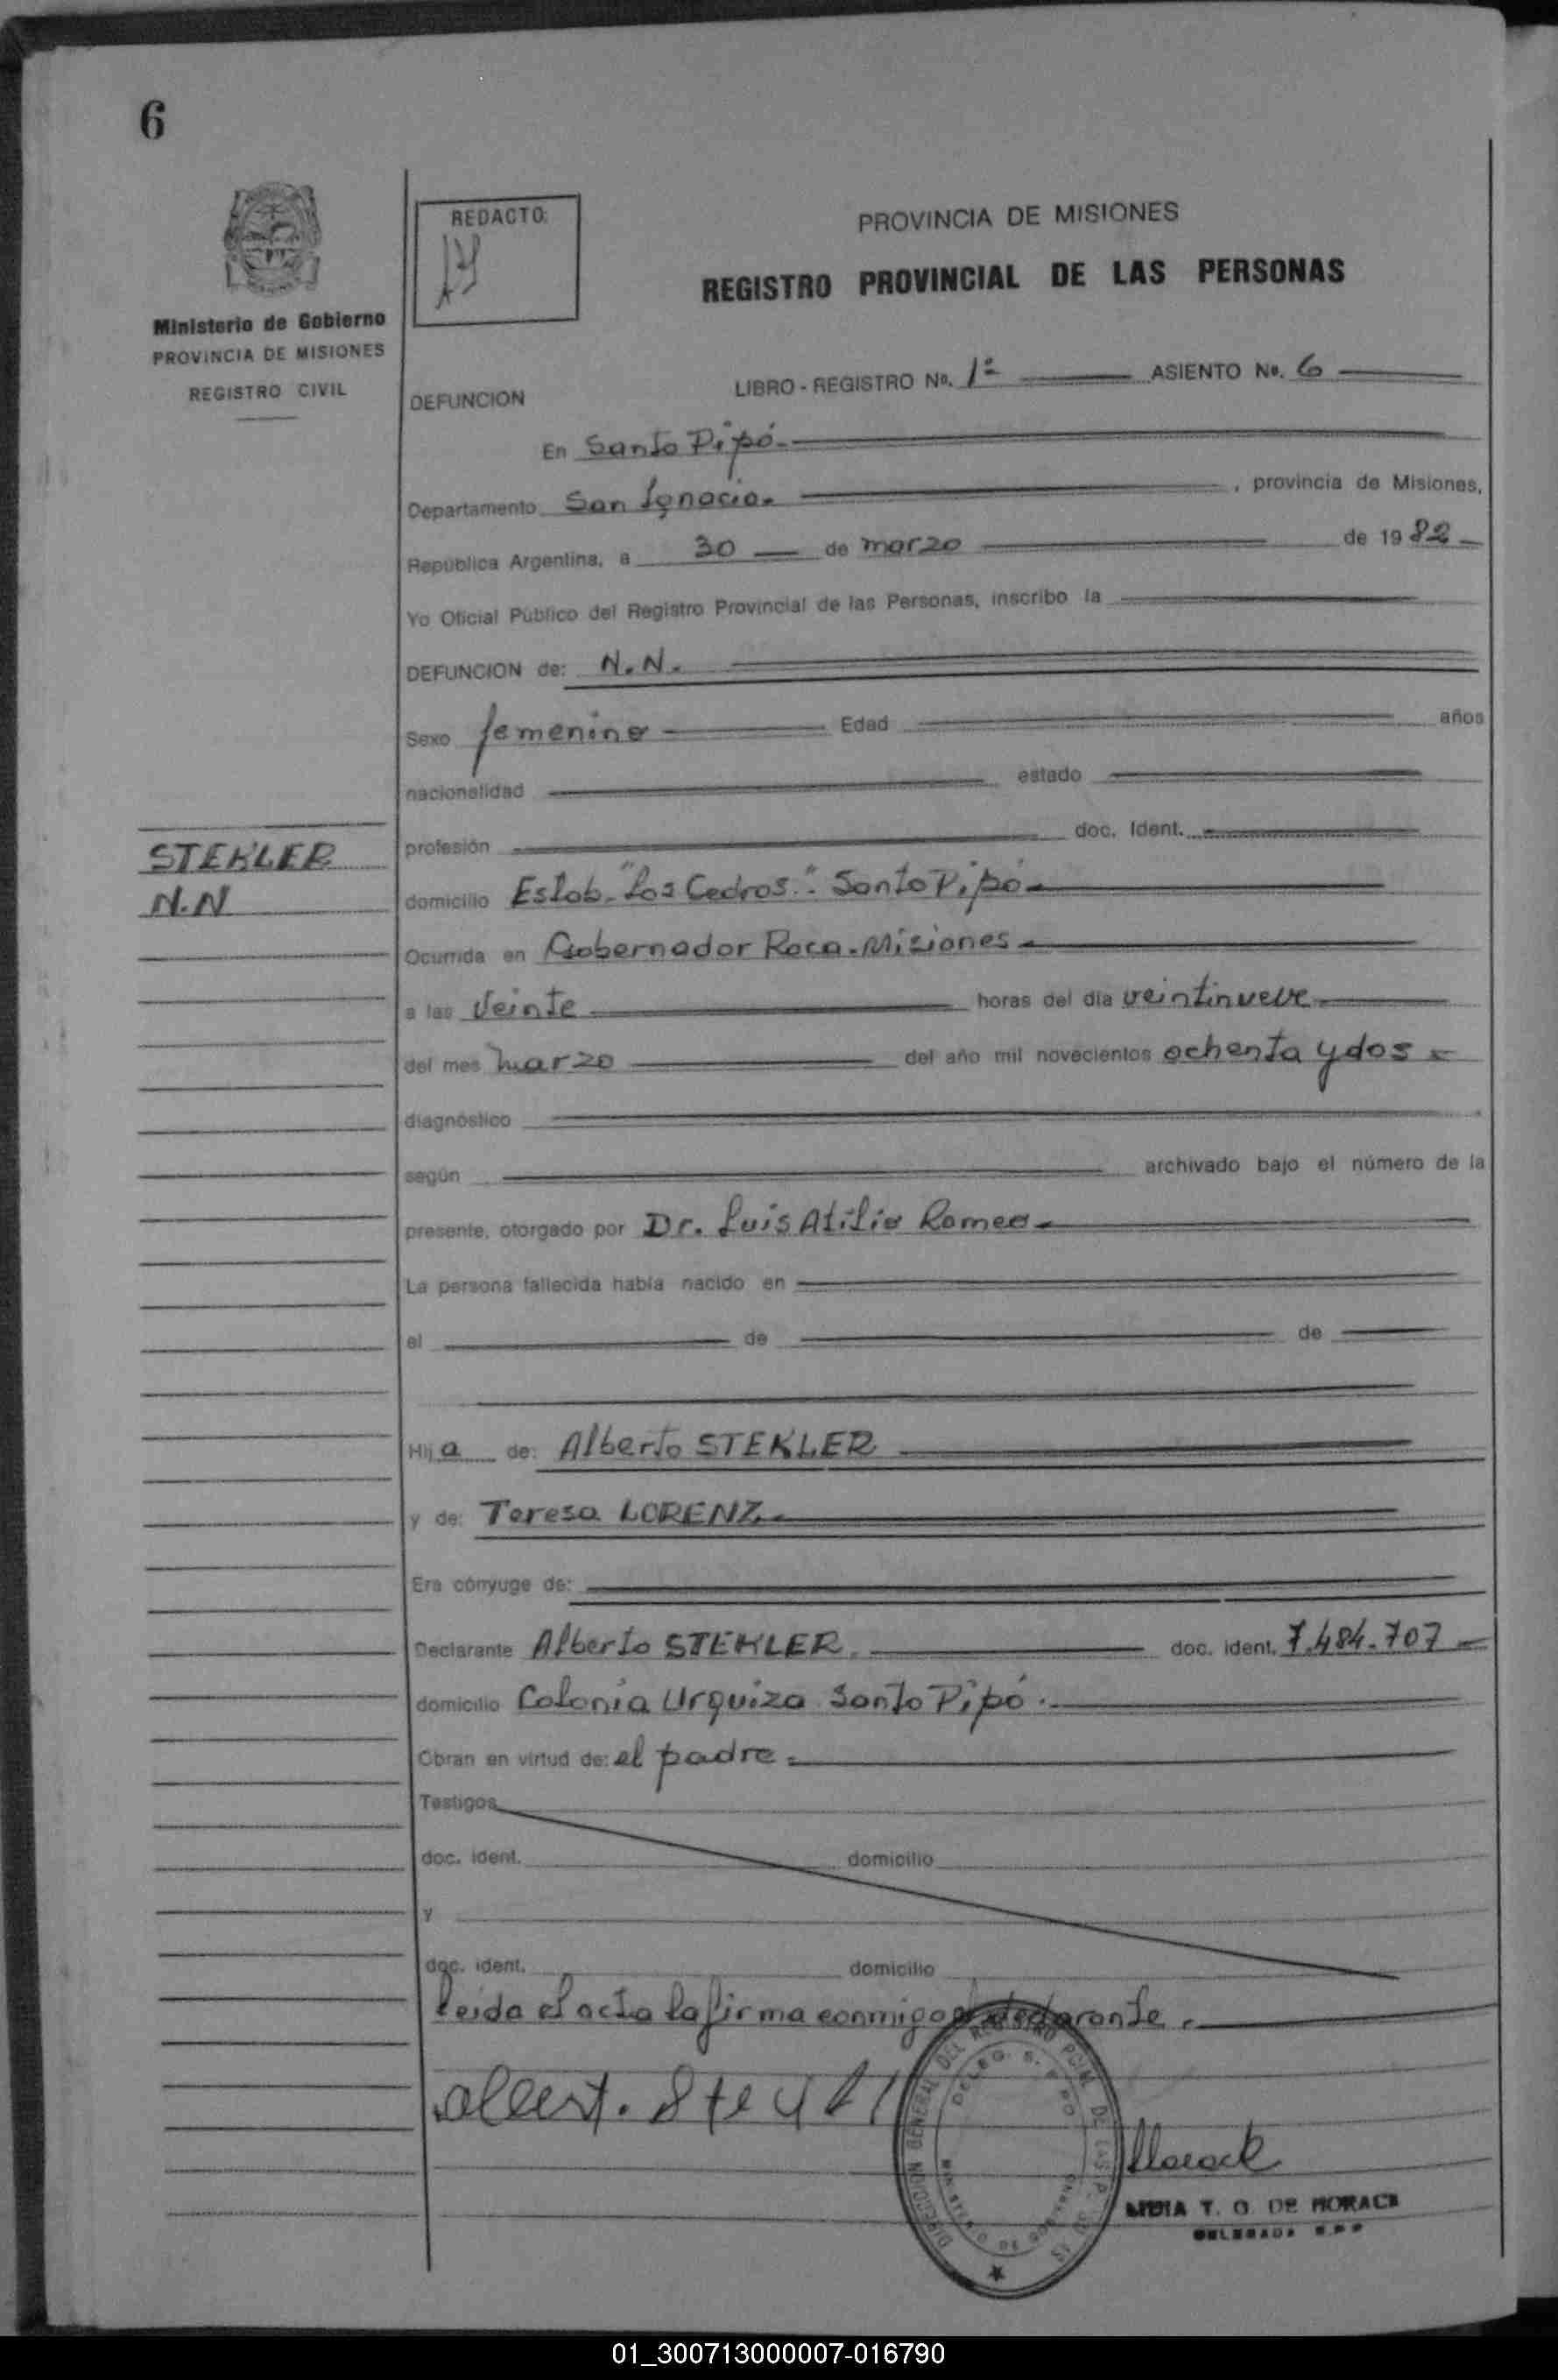 6
REDACTO:
PROVINCIA DE MISIONES
REGISTRO PROVINCIAL DE LAS PERSONAS
Ministerio de Gobierno
PROVINCIA DE MISIONES
REGISTRO CIVIL
LIBRO - REGISTRO Nº. 1º ASIENTO Nº. 6
DEFUNCION
En Santo Pipó.
Departamento San Ignacio. , provincia de Misiones,
República Argentina, a 30 de marzo de 1982
Yo Oficial Público del Registro Provincial de las Personas, inscribo la
DEFUNCION de: N.N.
Sexo femenino Edad años
nacionalidad estado
profesión doc. Ident.
STEKLER
N.N
domicilio Estab. "Los Cedros". Santo Pipó
Ocurrida en Gobernador Roca. Misiones
a las Veinte horas del día veintinueve
del mes marzo del año mil novecientos ochenta y dos
diagnóstico
según archivado bajo el número de la
presente, otorgado por Dr. Luis Atilio Romeo
La persona fallecida había nacido en
el de de
Hija de: Alberto STEKLER
y de: Teresa LORENZ
Era cónyuge de:
Declarante Alberto STEKLER. doc. ident. 7.484.707
domicilio Colonia Urquiza Santo Pipó.
Obran en virtud de: el padre
Testigos
doc. ident. domicilio
y
doc. ident. domicilio
leida el acta la firma conmigo el declarante.
DIRECCION GENERAL DEL REGISTRO PCIAL. DE LAS P.
DELEG. S. PIPO
T. O. DE MORACE
01_300713000007-016790